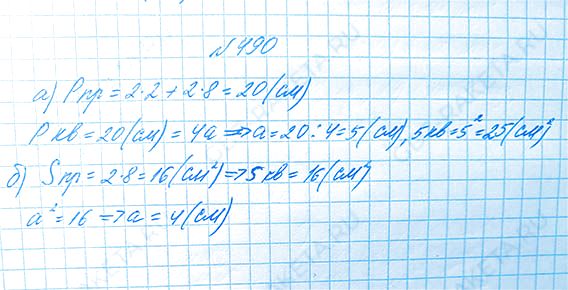 №490
а) Pпр = 2·2 + 2·8 = 20 (см)
Pкв = 20 (см) = 4a => a = 20 : 4 = 5 (см), Sкв = 5² = 25 (см²)
б) Sпр = 2·8 = 16 (см²) => Sкв = 16 (см²)
a² = 16 => a = 4 (см)